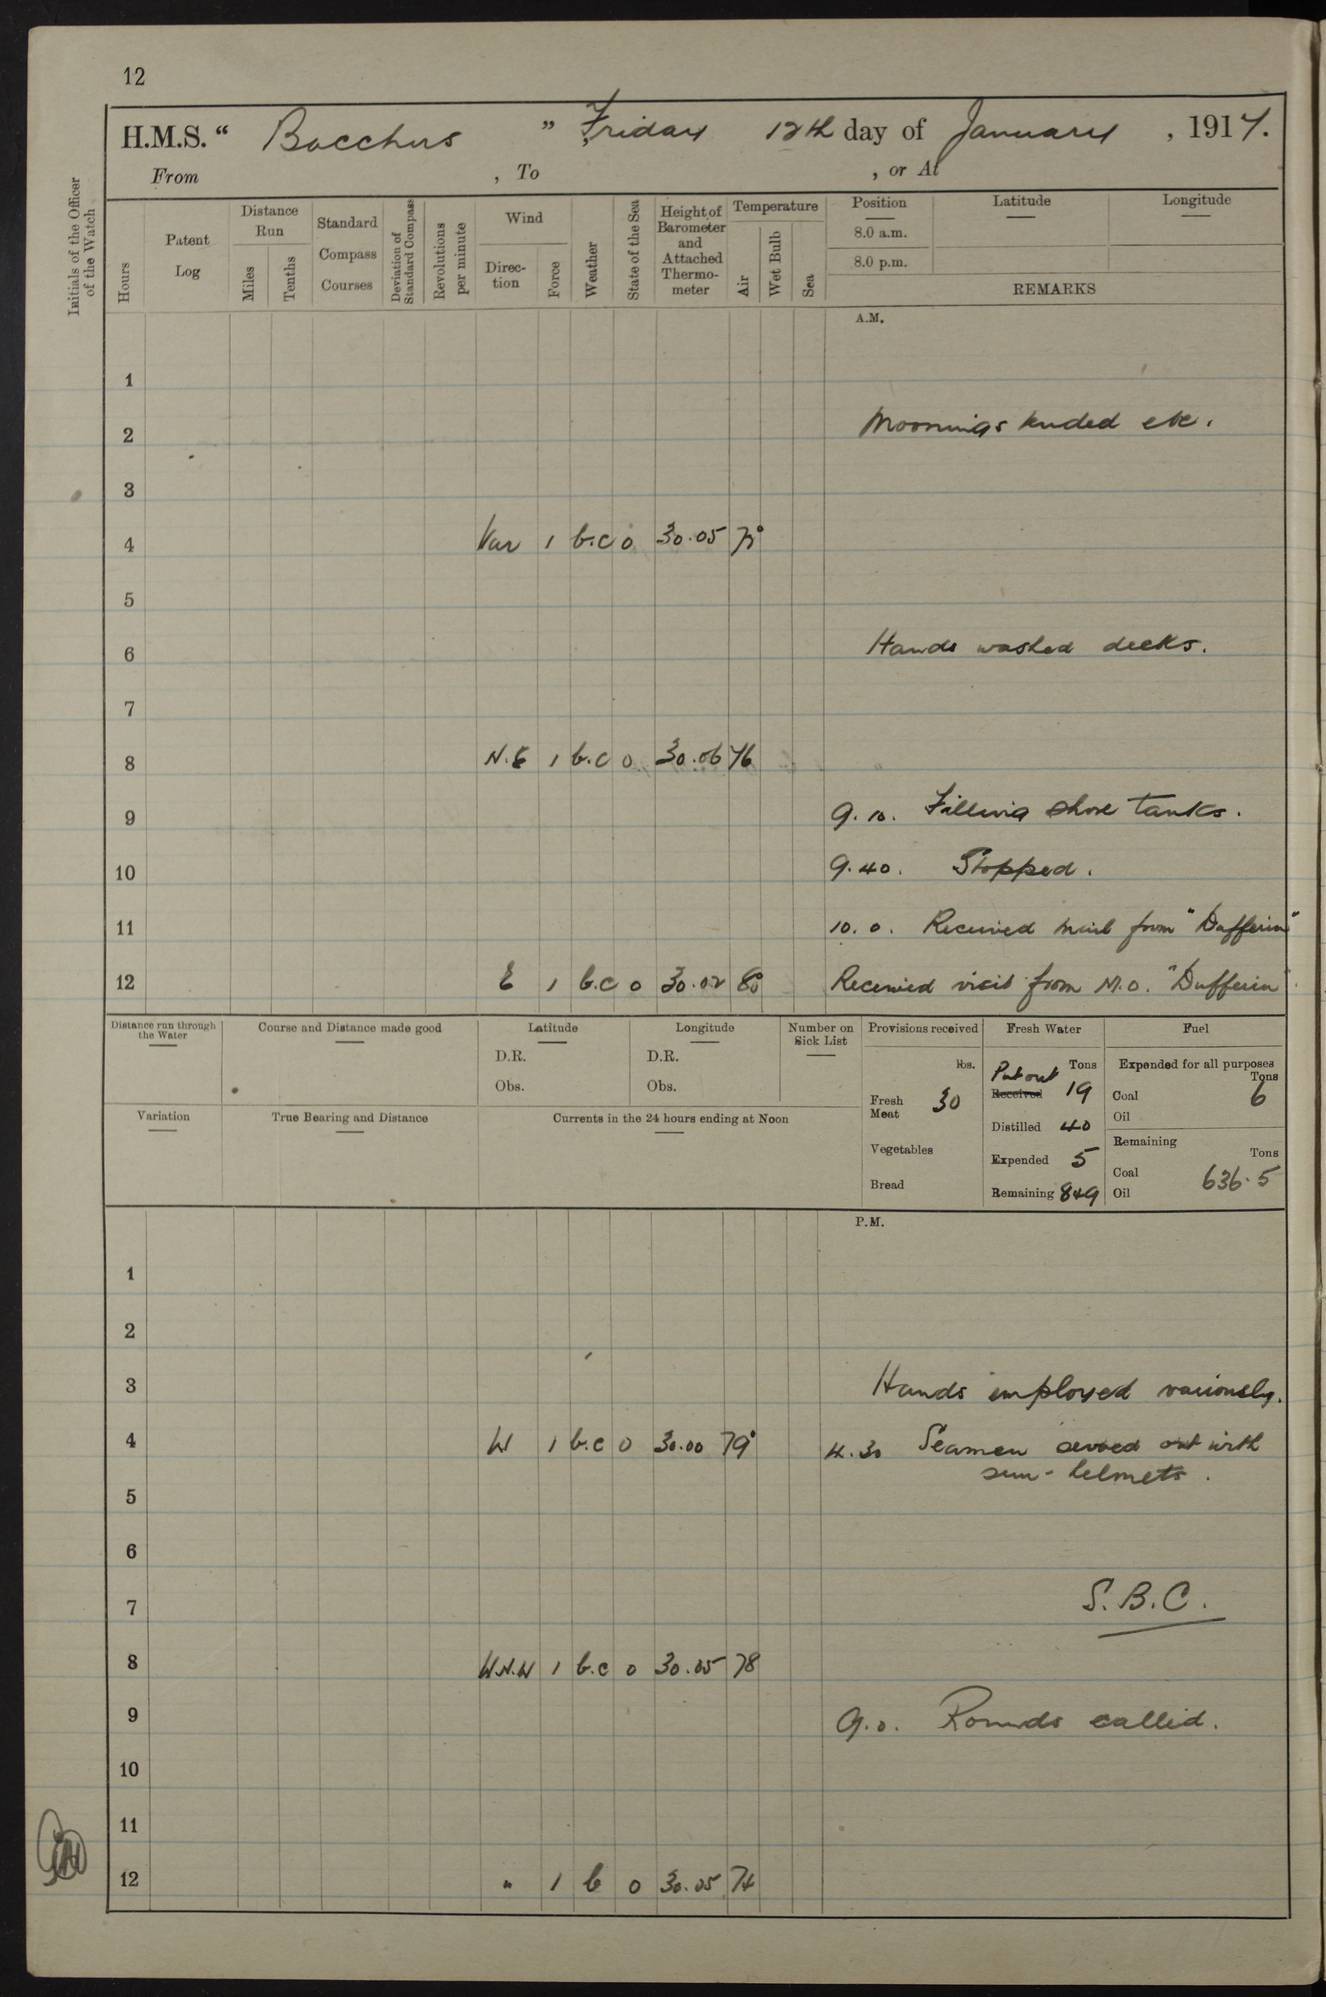 12
H.M.S. “ Bacchus ” Friday 12th day of January , 1917.
From , To , or At
Initials of the Officer of the Watch
Hours
Patent Log
Distance Run
Miles
Tenths
Standard Compass Courses
Deviation of Standard Compass
Revolutions per minute
Wind
Direction
Force
Weather
State of the Sea
Height of Barometer and Attached Thermometer
Temperature
Air
Wet Bulb
Sea
Position
8.0 a.m.
8.0 p.m.
Latitude
Longitude
REMARKS
A.M.
1
2 Moorings tended etc.
3
4 Var 1 b.c 0 30.05
5
6 Hands washed decks.
7
8 N.E 1 b.c 0 30.06 76
9 9.10. Filling shore tanks.
10 9.40. Stopped.
11 10.0. Received mail from "Dufferin"
12 E 1 b.c 0 30.02 80 Received visit from M.O. "Dufferin".
Distance run through the Water
Course and Distance made good
Latitude
D.R.
Obs.
Longitude
D.R.
Obs.
Number on Sick List
Provisions received
lbs.
Fresh Meat 30
Vegetables
Bread
Fresh Water
Tons
Put out
Received 19
Distilled 40
Expended 5
Remaining 849
Fuel
Expended for all purposes
Tons
Coal 6
Oil
Remaining
Tons
Coal 636.5
Oil
Variation
True Bearing and Distance
Currents in the 24 hours ending at Noon
P.M.
1
2
3 Hands employed variously.
4 W 1 b.c 0 30.00 79° 4.30 Seamen served out with
sun-helmets.
5
6
7 S.B.C.
8 W.N.W 1 b.c 0 30.05 78
9 9.0. Rounds called.
10
11
12 " 1 b 0 30.05 74